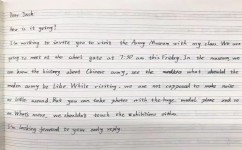 Dear Jack
How is it going?
I'm writing to invite you to visit the Army Museum with my class. We are
going to meet at the school gate at 7:30 on this Friday. In the museum, we
can know the history about Chinese army, see the what should the
army be like. While visiting, we are not supposed to make noise
or litter around. But you can take photos with the huge, model plane and so
on. What's more, we shouldn't touch the exhibition
I'm looking forward to your early reply.